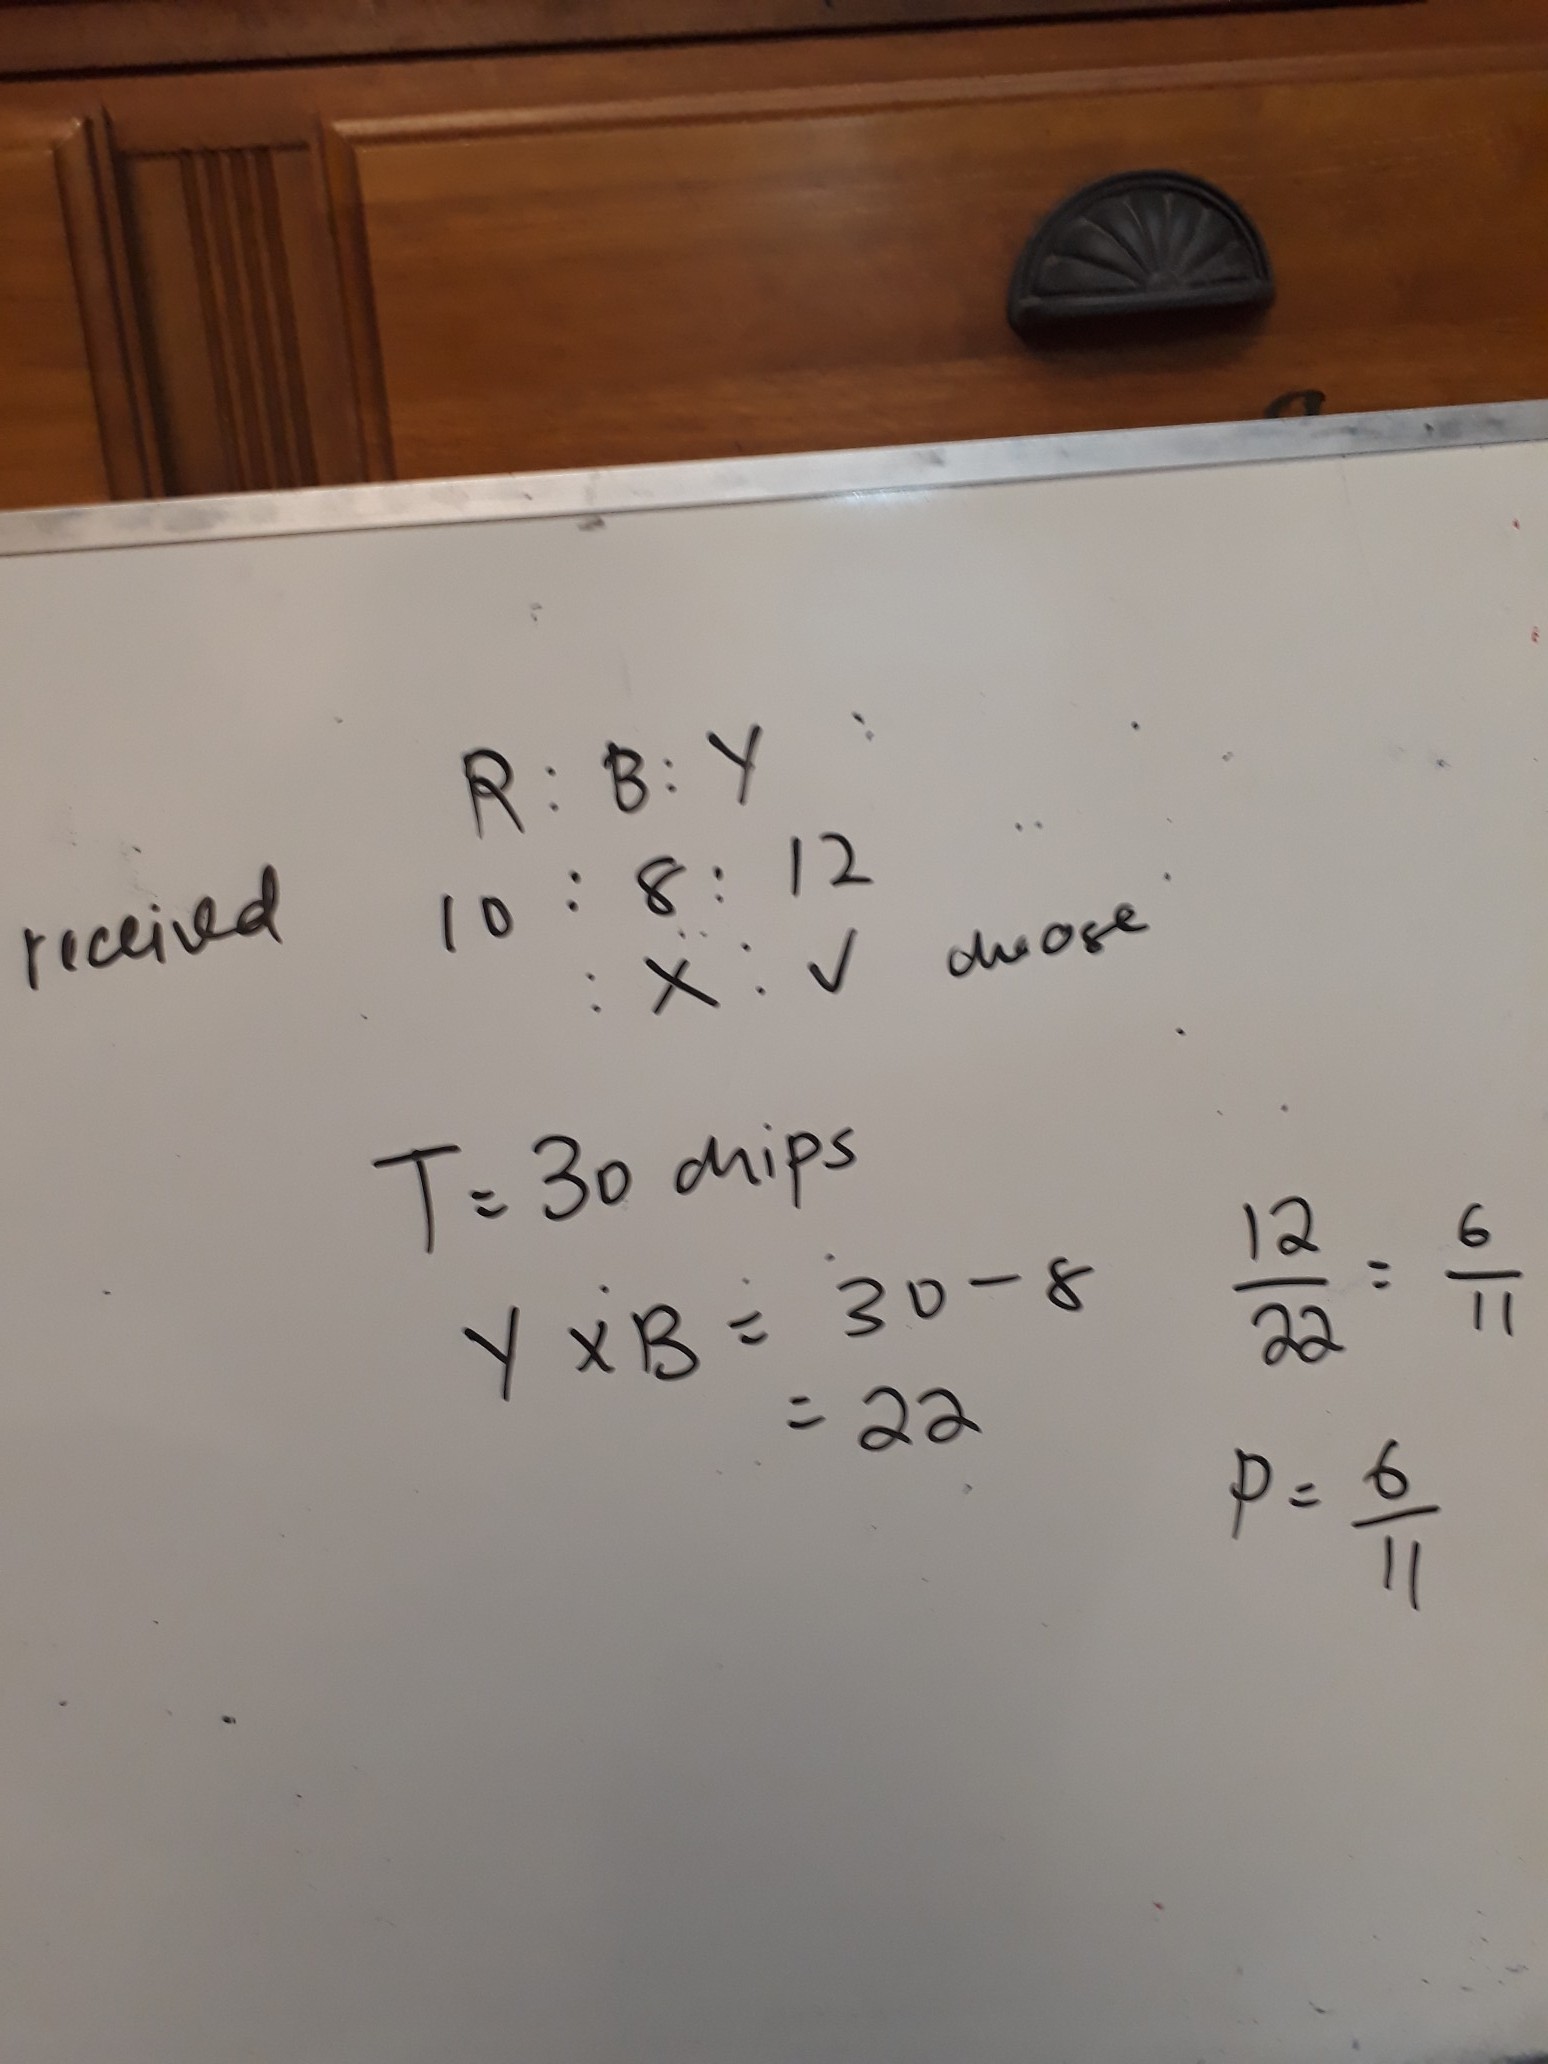 R : B : Y
received 10 : 8 : 12
: X : ✓ choose
T = 30 chips
Y x B = 30 - 8
= 22
12/22 = 6/11
P = 6/11